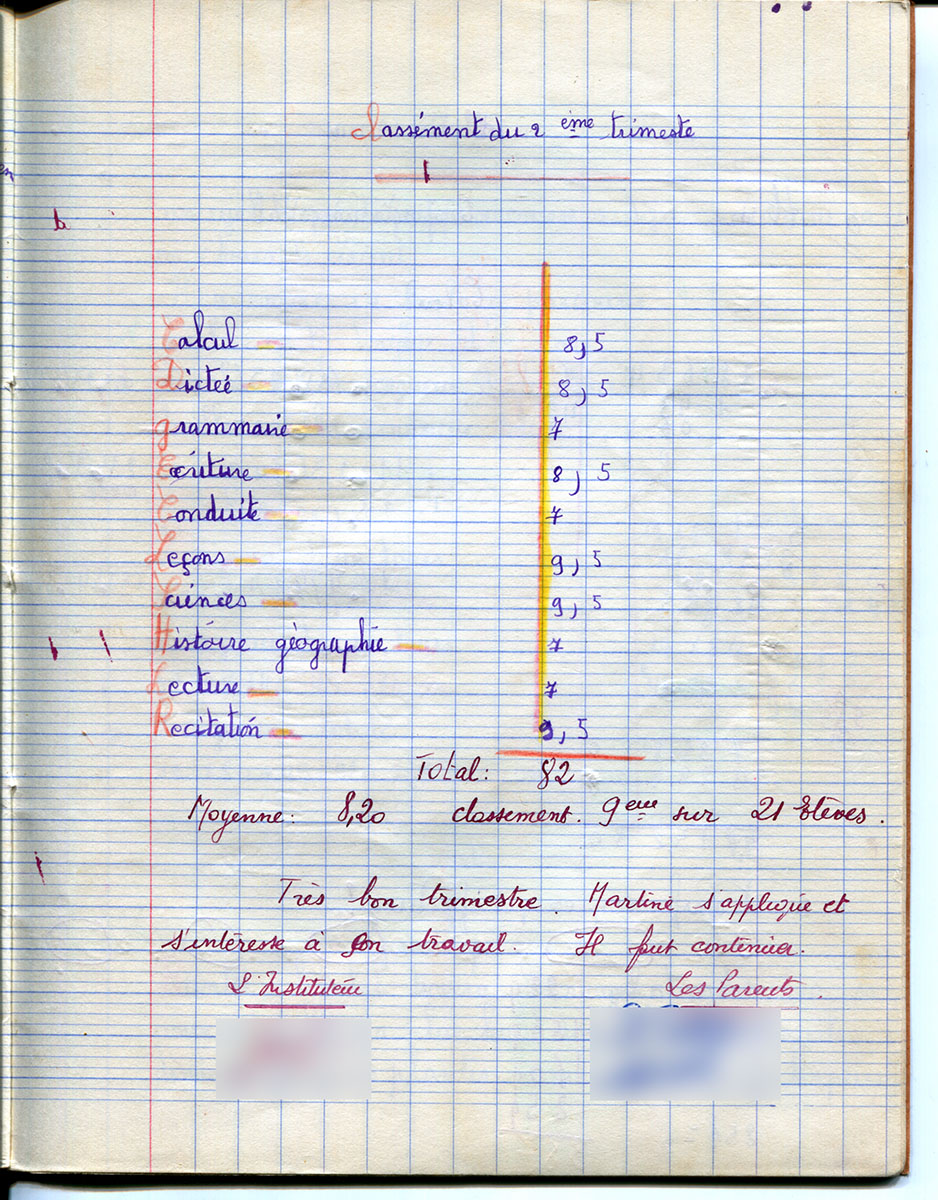 Classément du 2 ème trimeste
Calcul 8,5
Dicteé 8,5
grammarie 7
Ecriture 8,5
Conduite 7
Leçons 9,5
Sciences 9,5
Histoire géographie 7
Lecture 7
Recitation 9,5
Total: 82
Moyenne: 8,20 classement. 9eme sur 21 Elèves.
Très bon trimestre. Martine s'applique et
s'intéresse à son travail. Il faut continuer.
L'Instituteur Les Parents.